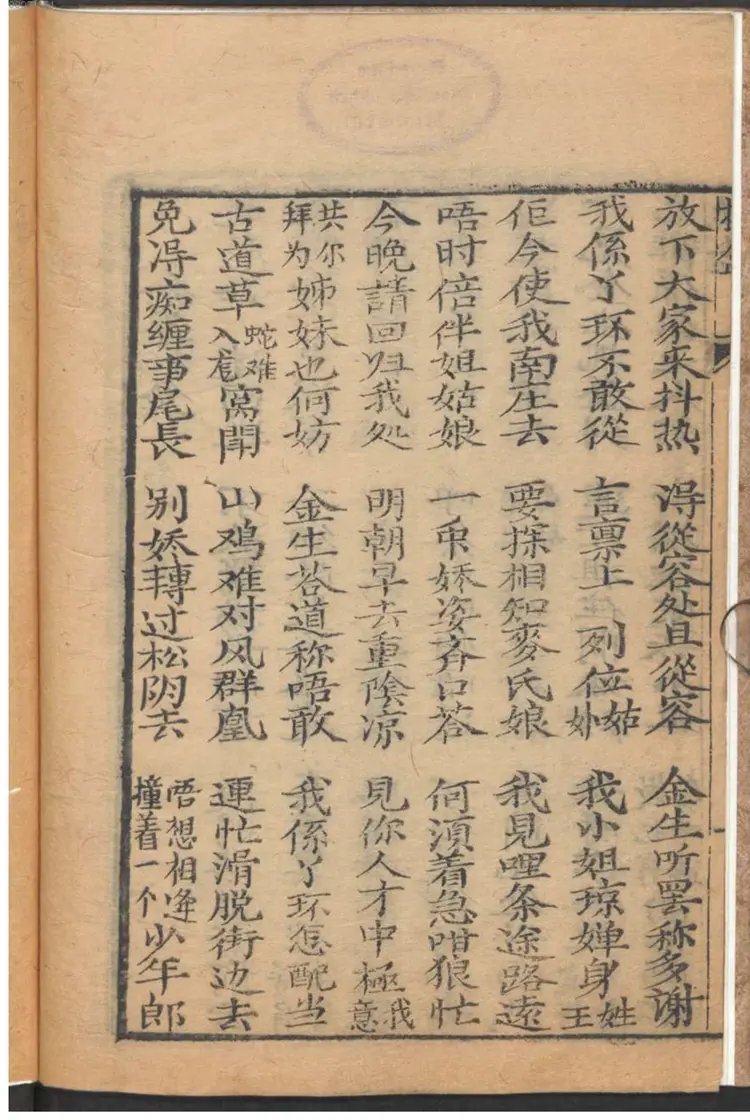 放下大家来抖热 淂從容处且從容 金生听罢称多谢
我係丫环不敢從 言禀上列位姑 我小姐琼婵身姓王
佢今使我南庄去 要探相知麥氏娘 我見哩条途路遠
唔时倍伴姐姑娘 一众娇姿斉口荅 何須着急咁狼忙
今晚請回归我处 明朝早去重陰凉 見你人才中極我意
共你拜为姊妹也何妨 金生荅道称唔敢 我係丫环怎配当
古道草蛇难入窝 山鸡难对凤群凰 連忙滑脱街边去
免淂痴缠事尾長 别娇轉过松阴去 唔想相逢撞着一个少年郎